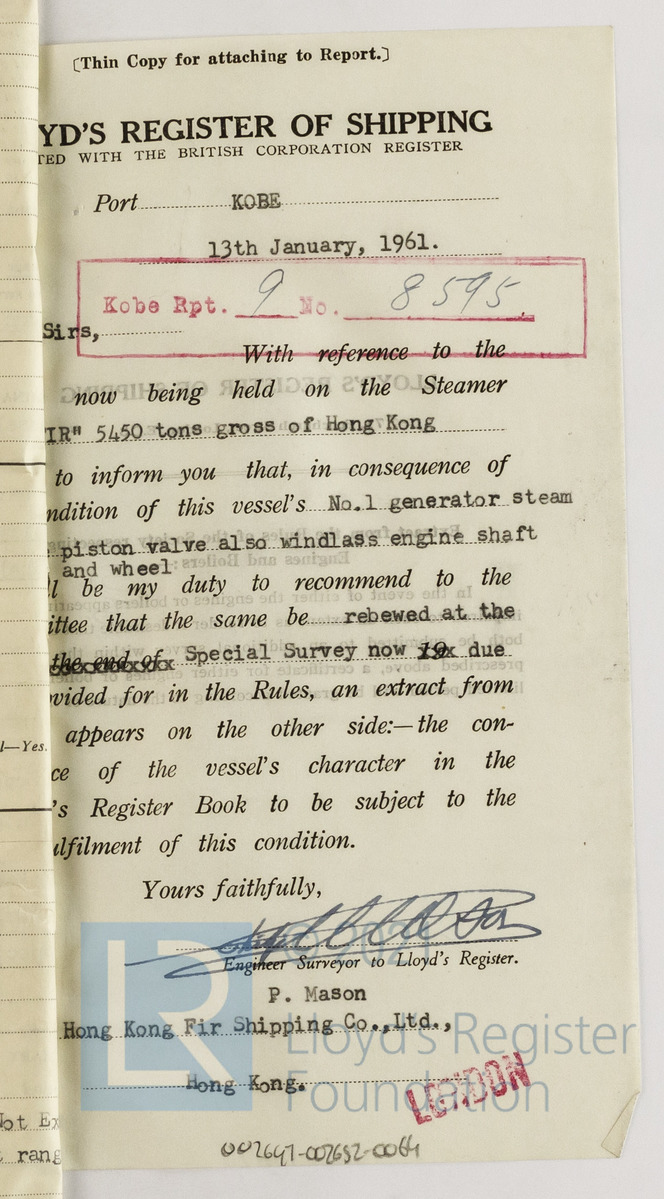 [Thin Copy for attaching to Report.]
YD'S REGISTER OF SHIPPING
TED WITH THE BRITISH CORPORATION REGISTER
Port KOBE
13th January, 1961.
Kobe Rpt. 9 No. 8595
Sirs,
With reference to the
now being held on the Steamer
IR" 5450 tons gross of Hong Kong
to inform you that, in consequence of
ndition of this vessel's No.1 generator steam
piston valve also windlass engine shaft
and wheel
l be my duty to recommend to the
ittee that the same be rebewed at the
the end of Special Survey now 19x due
vided for in the Rules, an extract from
appears on the other side:—the con-
l—Yes.
ce of the vessel's character in the
's Register Book to be subject to the
ulfilment of this condition.
Yours faithfully,
Engineer Surveyor to Lloyd's Register.
P. Mason
Hong Kong Fir Shipping Co.,Ltd.,
Hong Kong.
LONDON
LR
© 2021
Lloyd's Register
Foundation
Not Ex
rang
002647-002652-0064